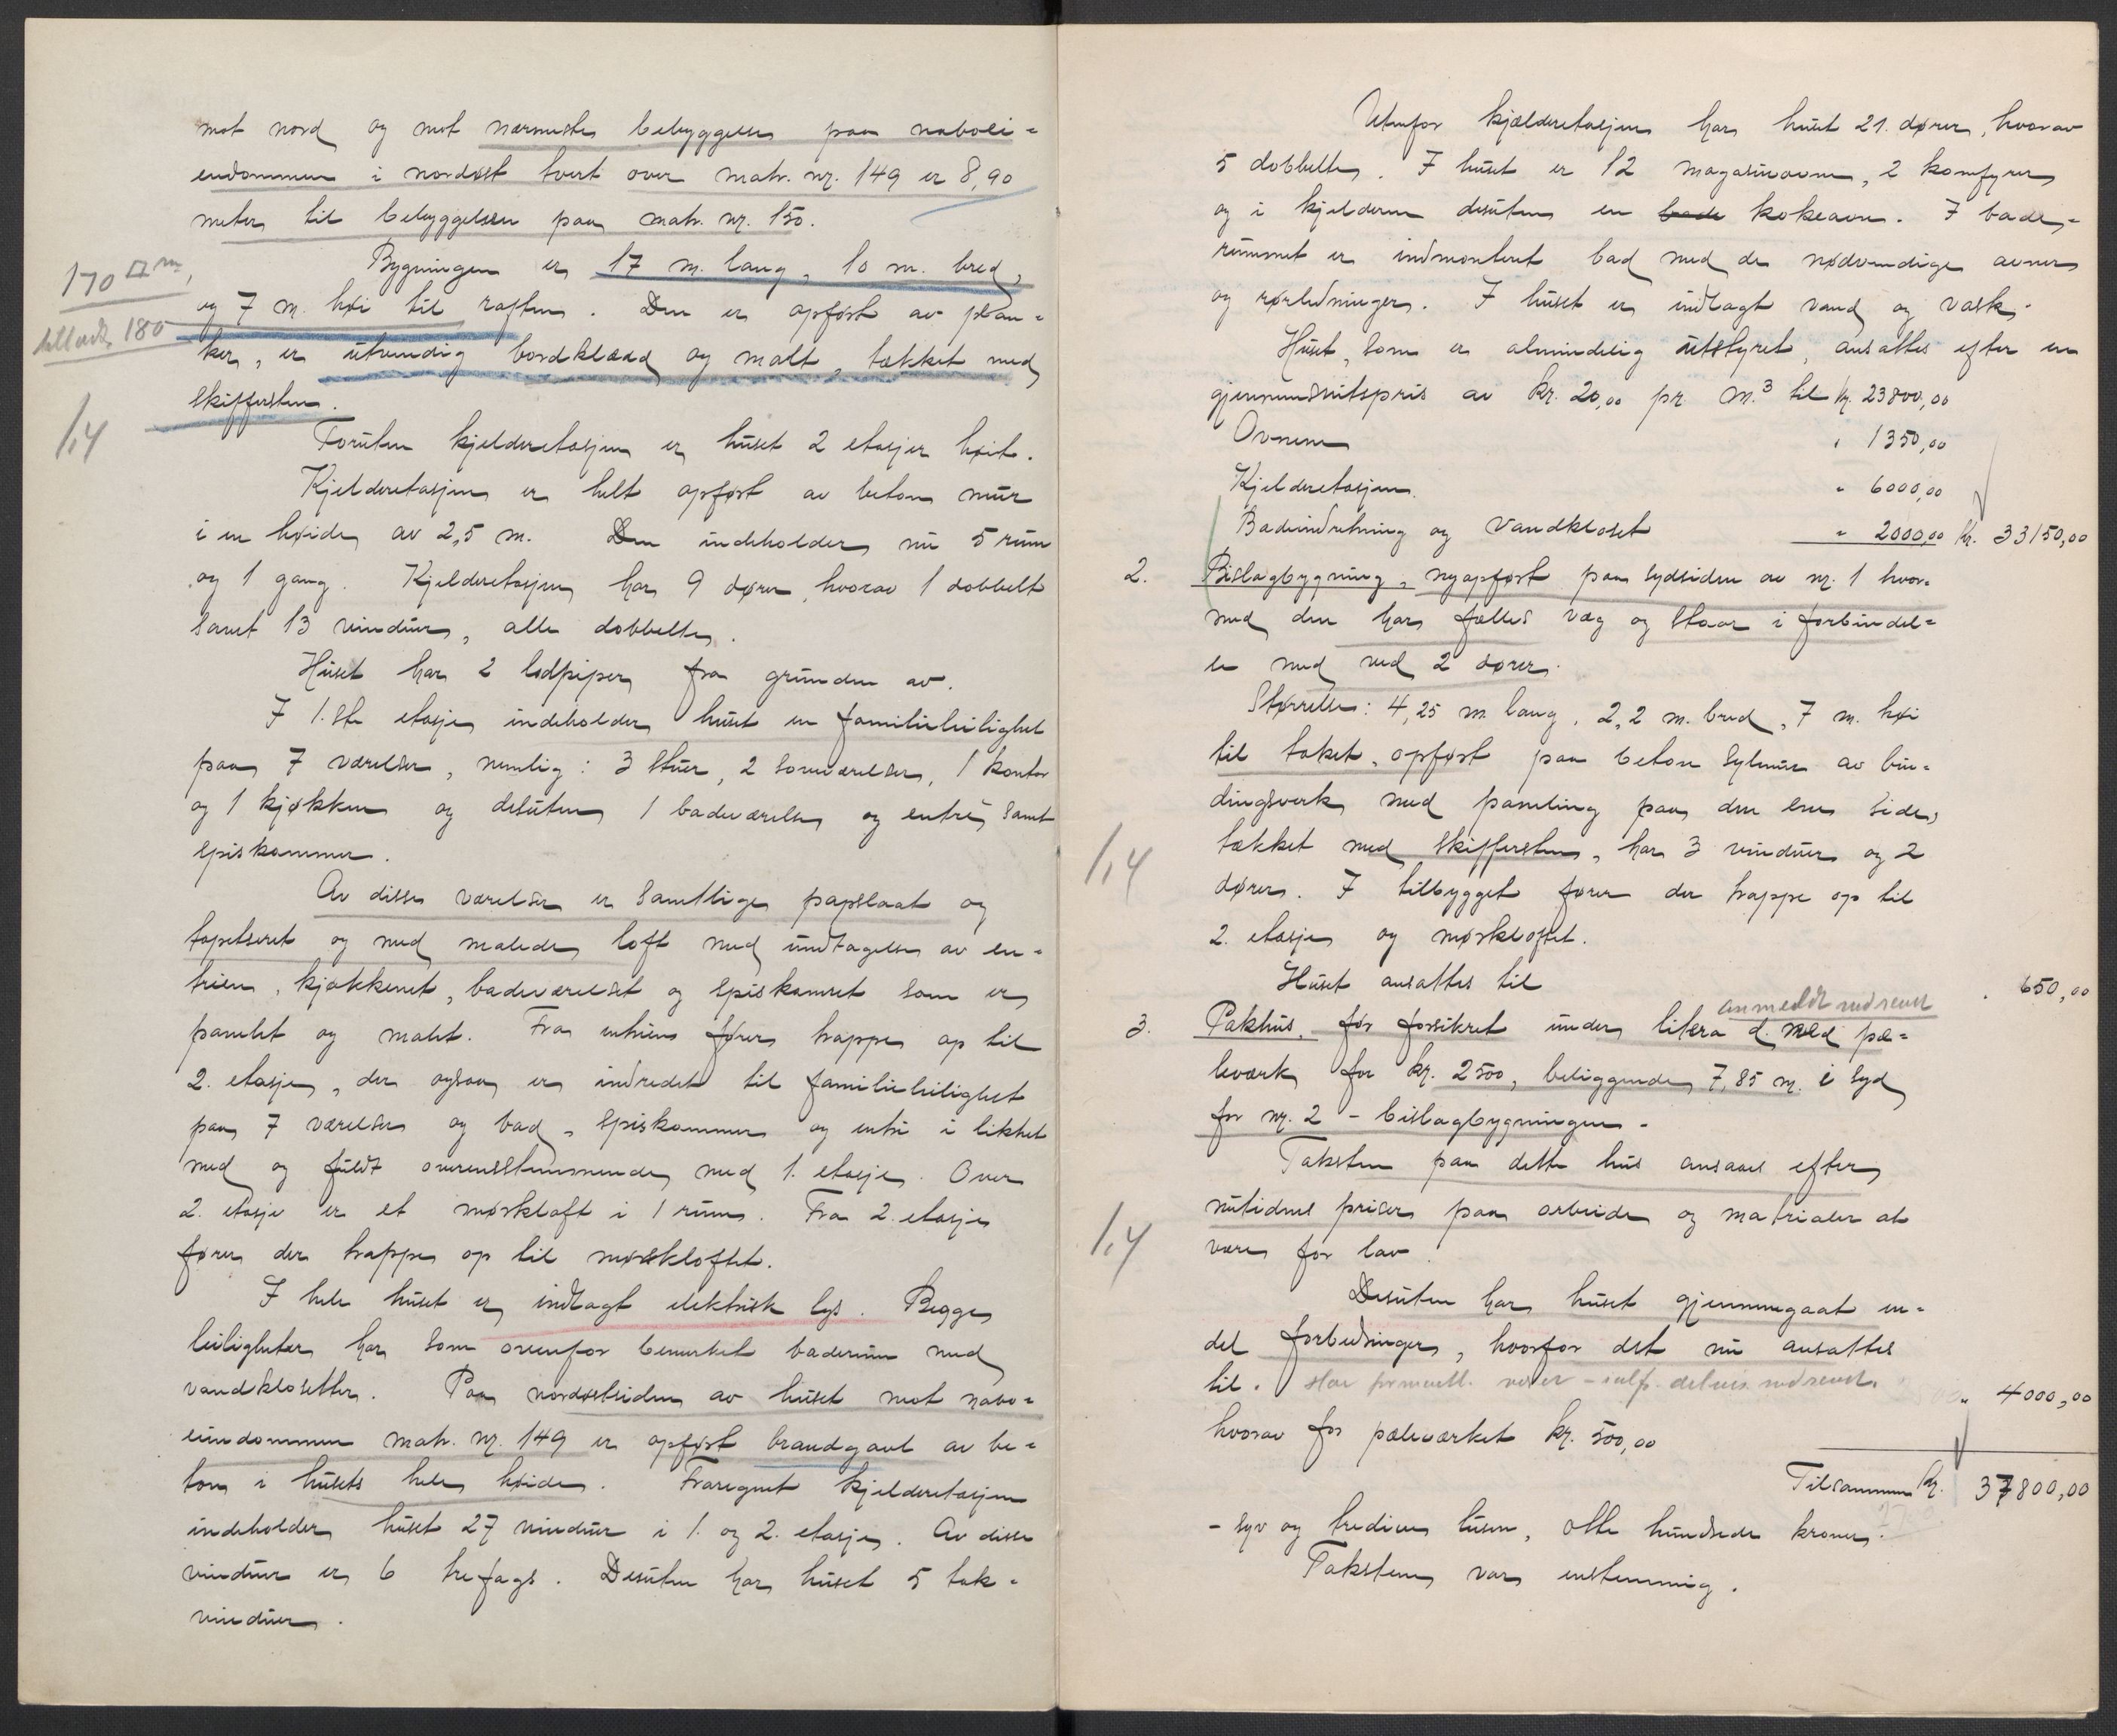 mot nord og mot nærmeste bebyggelse paa naboei-
endommen i nordøst tvert over matr. nr. 149 er 8,90
meter til bebyggelsen paa matr. nr. 150.
170 □ m,
Bygningen er 17 m. lang, 10 m. bred,
og 7 m. høi til raften. Den er opført av plan-
180
ker, er utvendig bordklædd og malt, tækket med
skiffersten.
1/4
Foruten kjelderetasjen er huset 2 etasjer høit.
Kjelderetasjen er helt opført av beton mur
i en høide av 2,5 m. Den indeholder nu 5 rum
og 1 gang. Kjelderetasjen har 9 dører, hvorav 1 dobbelt
samt 13 vinduer, alle dobbelte.
Huset har 2 lodpiper fra grunden av.
I 1.ste etasje indeholder huset en familieleilighet
paa 7 værelser, nemlig: 3 stuer, 2 soveværelser, 1 kontor
og 1 kjøkken og desuten 1 badeværelse og entré samt
spiskammer.
Av disse værelser er samtlige papslaat og
tapetseret og med malede loft med undtagelse av en-
trèen, kjøkkenet, badeværelset og spiskamret som er
panelet og malet. Fra entréen fører trappe op til
2. etasje, der ogsaa er indredet til familieleilighet
paa 7 værelser og bad, spiskammer og entré i likhet
med og fuldt overensstemmende med 1. etasje. Over
2. etasje er et mørkloft i 1 rum. Fra 2. etasje
fører der trappe op til mørkloftet.
I hele huset er indlagt elektrisk lys. Begge
leiligheter har som ovenfor bemerket baderum med
vandklosetter. Paa nordøstsiden av huset mot nabo-
eiendommen matr. nr. 149 er opført brandgavl av be-
ton i husets hele høide. Fraregnet kjelderetasjen
indeholder huset 27 vinduer i 1. og 2. etasje. Av disse
vinduer er 6 trefags. Desuten har huset 5 tak-
vinduer.
Utenfor kjælderetasjen har huset 21. dører, hvorav
5 dobbelte. I huset er 12 magasinovner, 2 komfyrer
og i kjelderen desuten en bade kokeovn. I bade-
rummet er indmonteret bad med de nødvendige ovner
og rørledninger. I huset er indlagt vand og vask.
Huset, som er almindelig utstyret, ansættes efter en
gjennemsnitspris av kr. 20,00 pr. m.³ til kr. 23800,00
Ovnene " 1350,00
Kjelderetasjen " 6000,00
Badeindretning og vandkloset " 2000,00 kr. 33150,00
2. Bislagbygning, nyopført paa sydsiden av nr. 1 hvor-
med den har fælles væg og staar i forbindel-
se med ved 2 dører.
Størrelse: 4,25 m. lang, 2,2 m. bred, 7 m. høi
til taket, opført paa beton sylmur av bin-
dingsverk med paneling paa den ene side,
1/4
tækket med skiffersten, har 3 vinduer og 2
dører. I tilbygget fører der trappe op til
2. etasje og mørkloftet.
Huset ansættes til " 650,00
anmeldt nedrevet
3. Pakhus, før forsikret under litera d. med pæ-
leværk for kr. 2500, beliggende 7,85 m. i syd
for nr. 2 - bislagbygningen -
Taksten paa dette hus ansaaes efter
1/4
nutidens priser paa arbeide og matrialer at
være for lav.
Desuten har huset gjennemgaat en-
del forbedringer, hvorfor det nu ansættes
til. " 4000,00
hvorav for pæleværket kr. 500,00
Tilsammen kr. 37800,00
- syv og trediven tusen, otte hundrede kroner.
Taksten var enstemmig.